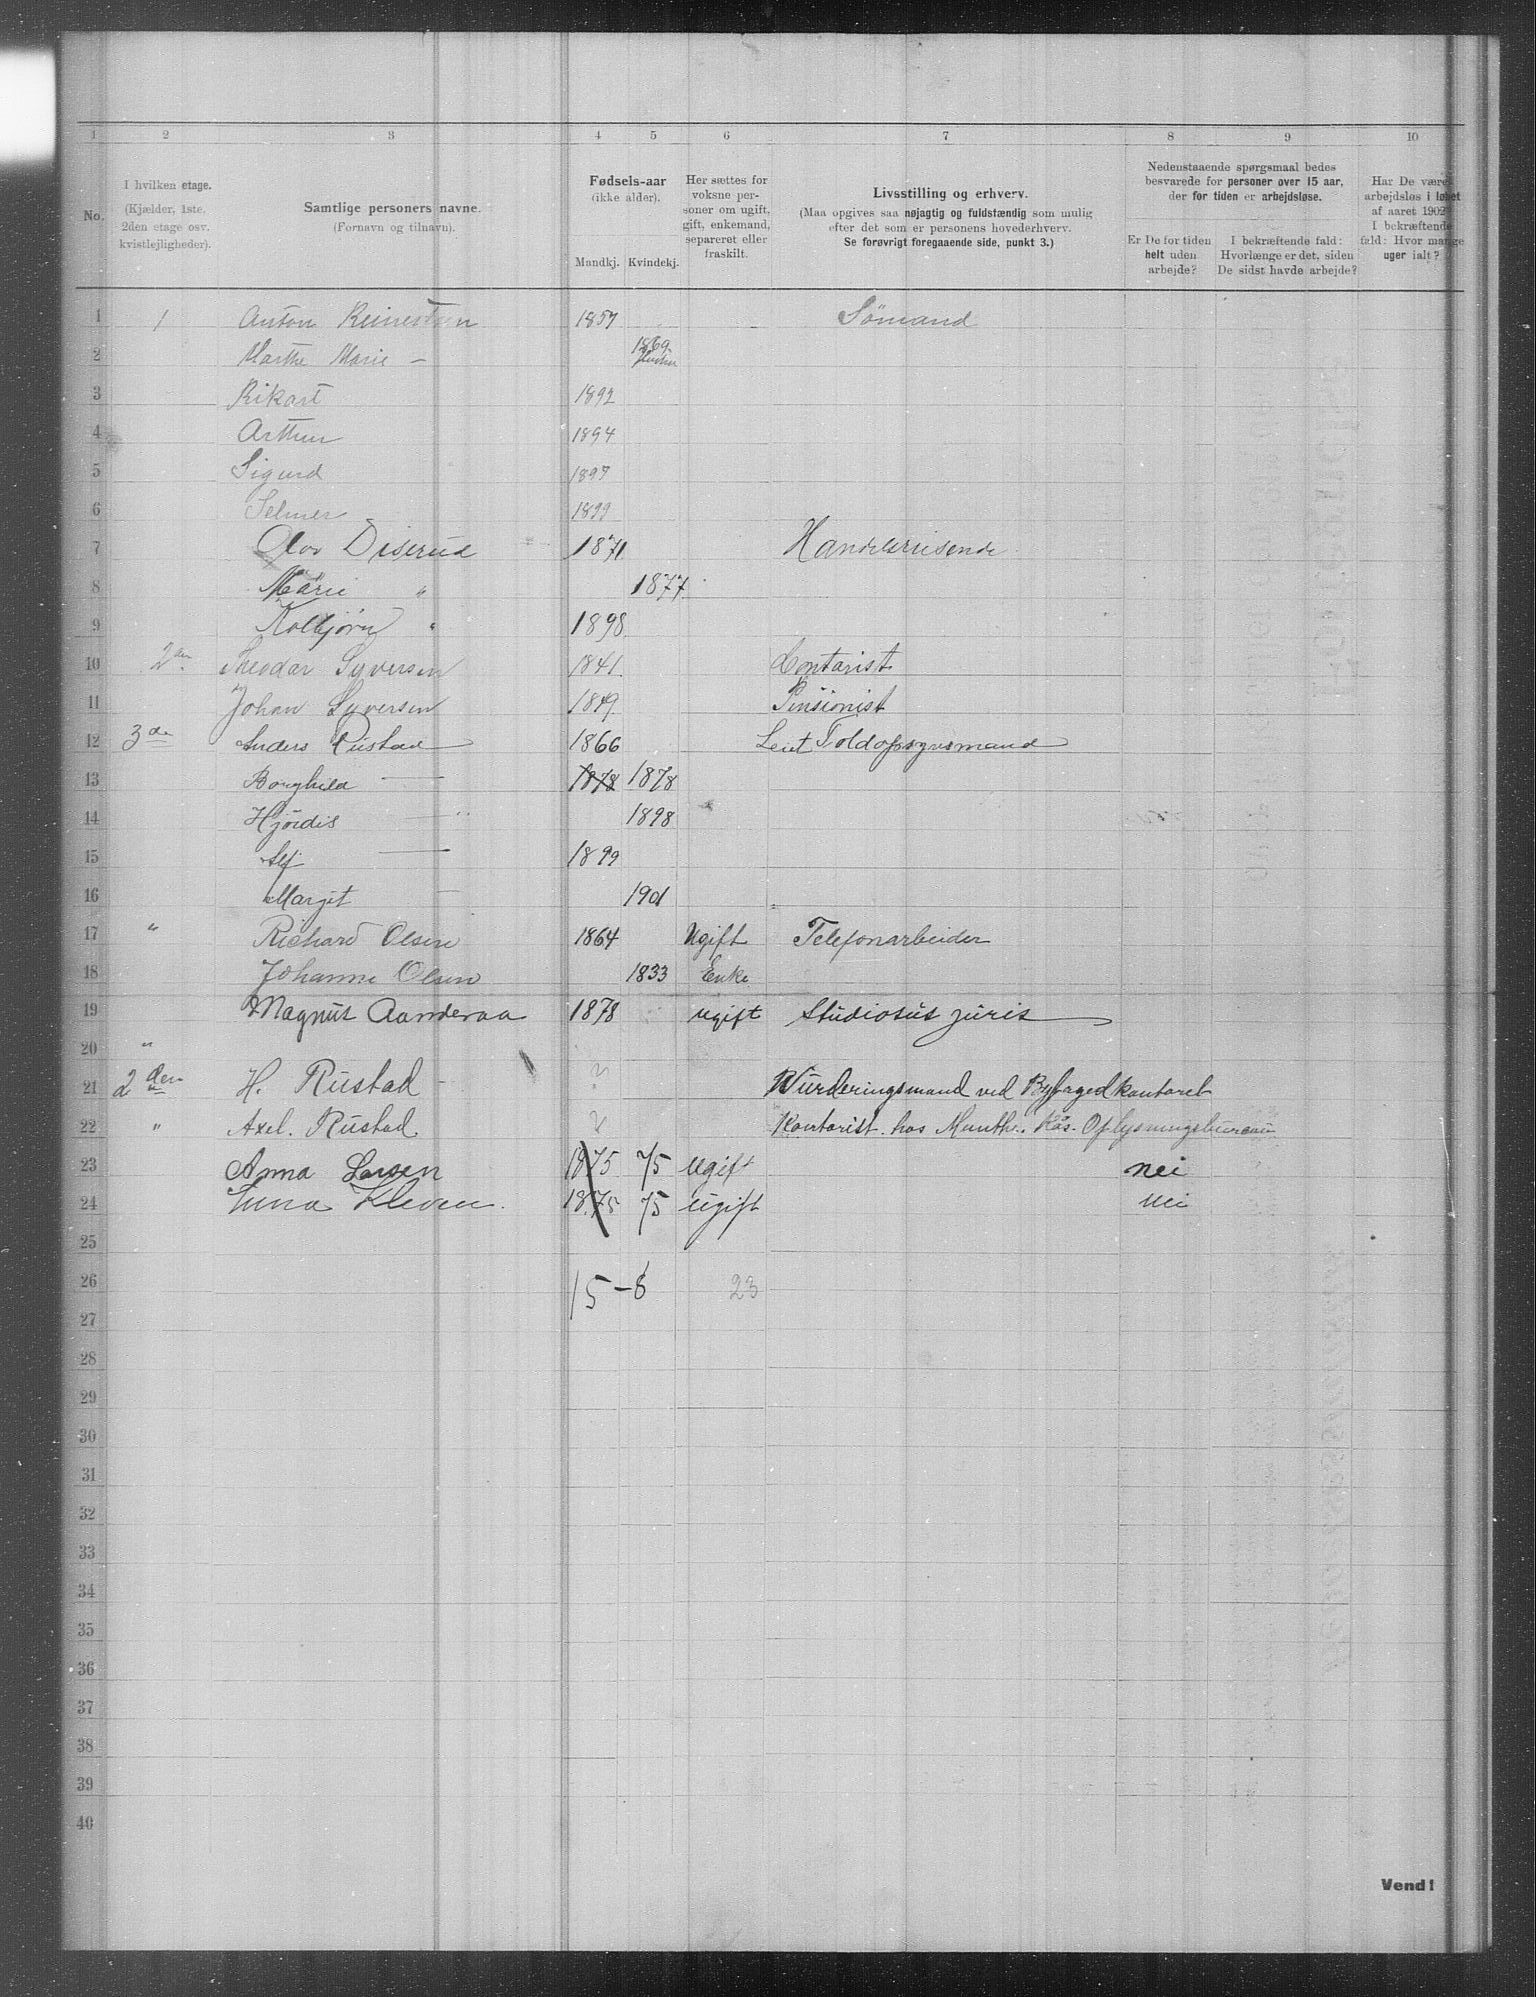 1 2 3 4 5 6 7 8 9 10
No.
I hvilken etage.
(Kjælder, 1ste. 2den etage osv. kvistlejligheder).
Samtlige personers navne.
(Fornavn og tilnavn).
Fødsels-aar
(ikke alder).
Mandkj. Kvindekj.
Her sættes for voksne personer om ugift, gift, enkemand, separeret eller fraskilt.
Livsstilling og erhverv.
(Maa opgives saa nøjagtig og fuldstændig som mulig
efter det som er personens hovederhverv.
Se forøvrigt foregaaende side, punkt 3.)
Nedenstaaende spørgsmaal bedes
besvarede for personer over 15 aar,
der for tiden er arbejdsløse.
Er De for tiden helt uden arbejde?
I bekræftende fald: Hvorlænge er det, siden De sidst havde arbejde?
Har De været arbejdsløs i løbet af aaret 1902? I bekræftende fald: Hvor mange uger ialt?
1 1 Anton 1857 Sømand
2 Marthe Marie – 1869
3 Rikart 1892
4 Arthur 1894
5 Sigurd 1897
6 Selmer 1899
7 Olov Diserud 1871 Handelsreisende
8 Marie " 1877
9 Kolbjørn " 1898
10 2en Theodor Syversen 1841 Contorist
11 Johan Syversen 1849 Pensionist
12 3de Anders Rustad 1866 Toldopsynsmand
13 Borghild — 1878 1878
14 Hjördis — " 1898
15 Alf — 1899
16 Margit — 1901
17 " Richard Olsen 1864 Ugift Telefonarbeider
18 Johanne Olsen 1833 Enke
19 Magnus Aanderaa 1878 ugift Studiosus juris
20 "
21 2den H. Rustad ? Wurderingsmand ved Byfogedkontoret
22 " Axel. Rustad ? Kontorist hos Munthe Kås. Oplysningsbureau
23 Anna Larsen 1875 75 Ugift nei
24 Anna Kleven. 1875 75 Ugift nei
25
26 15-8 23
27
28
29
30
31
32
33
34
35
36
37
38
39
40
Vend!